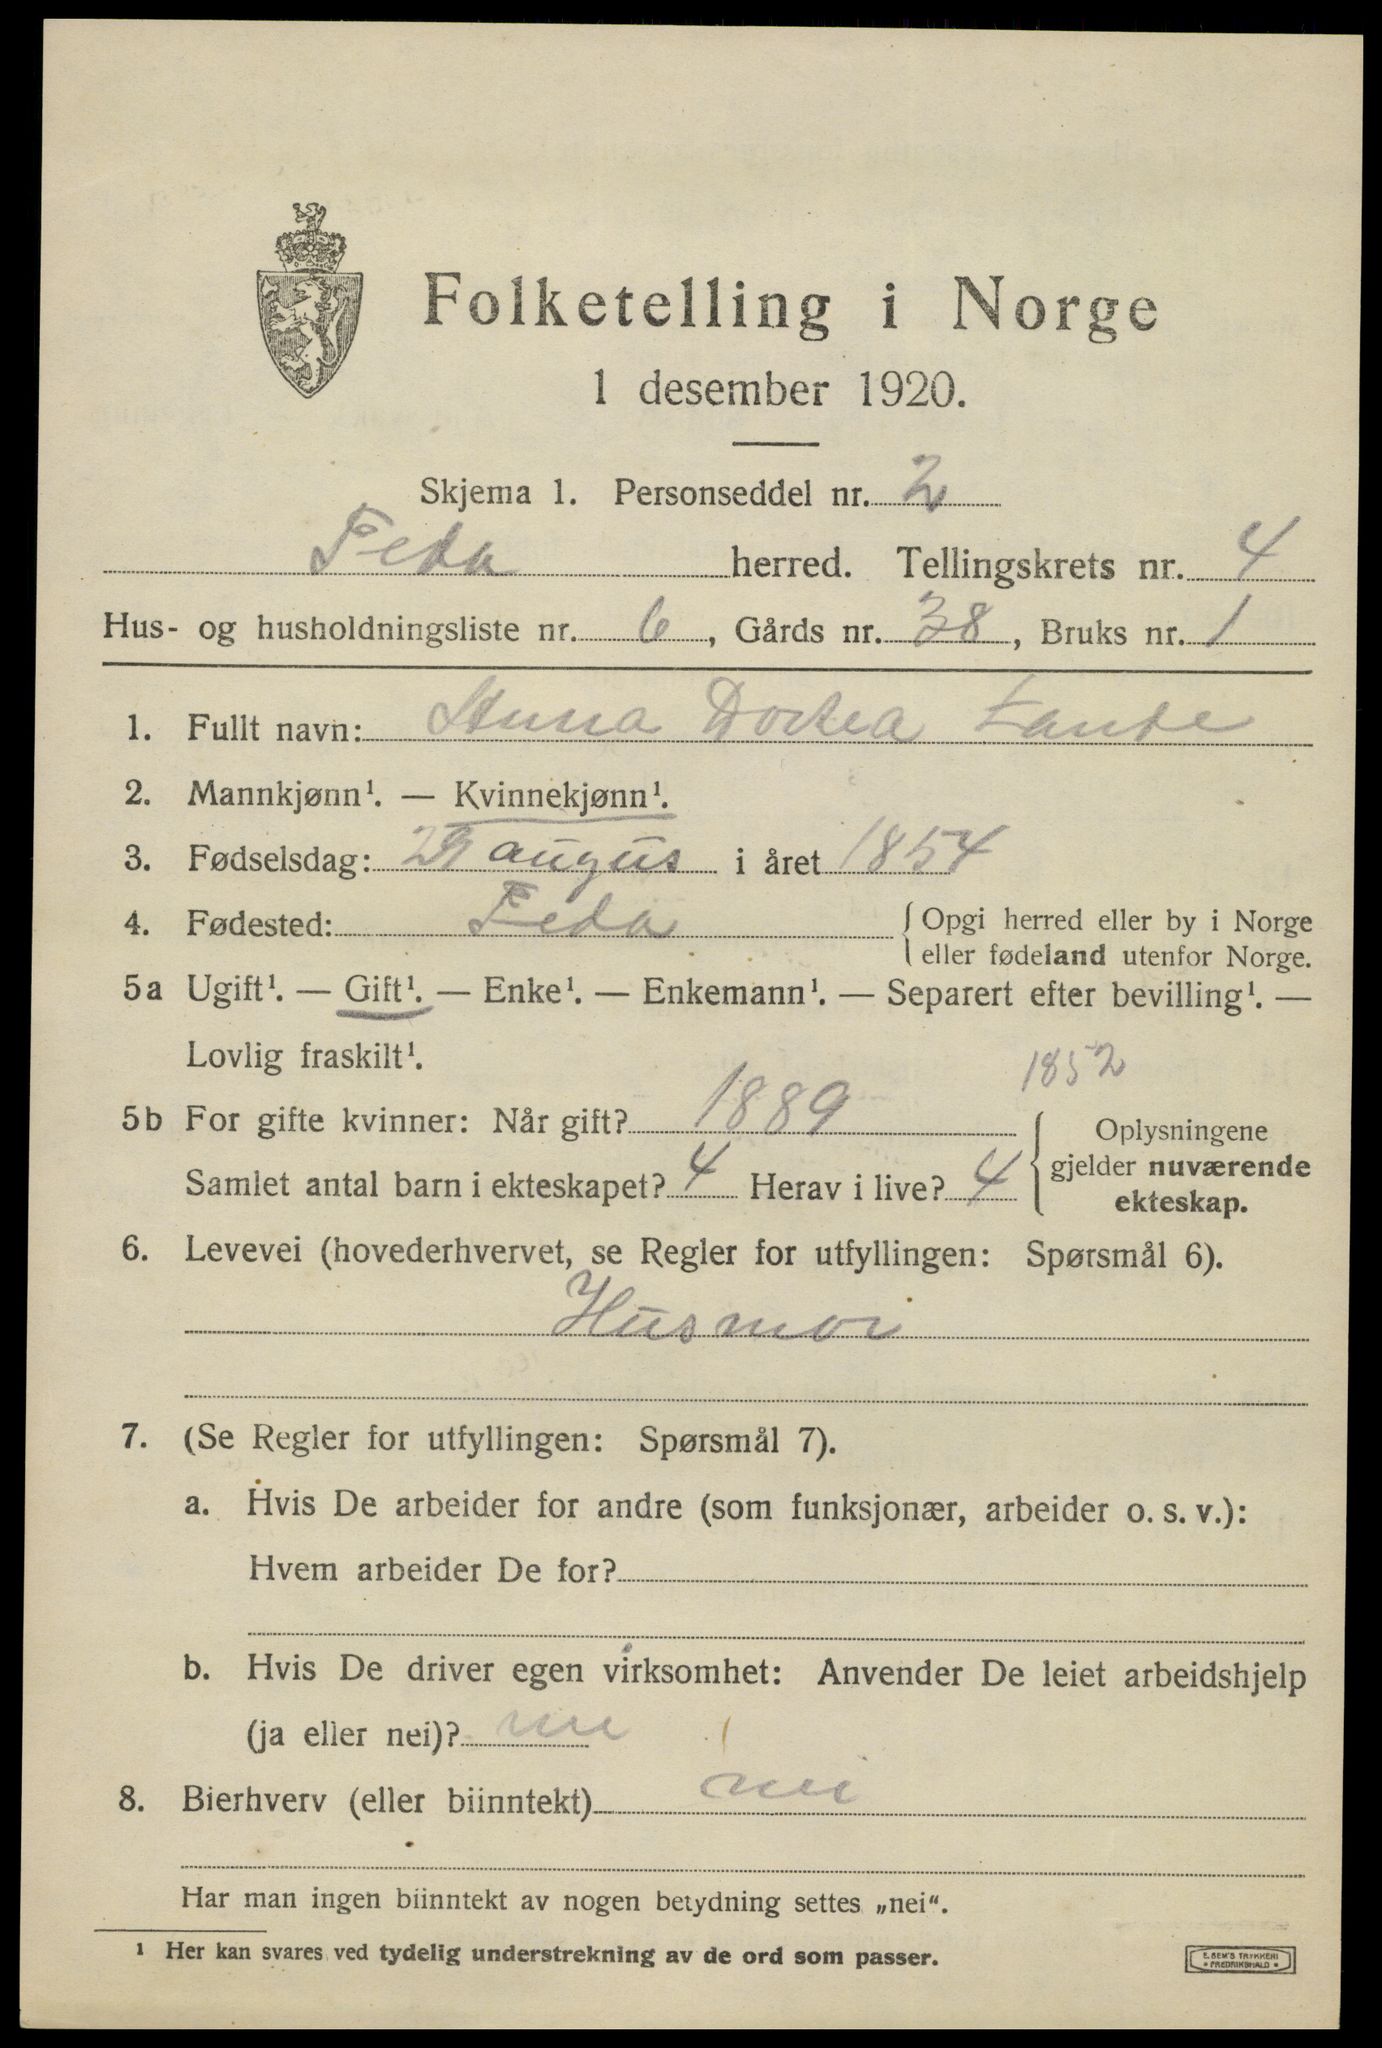 Folketelling i Norge
1 desember 1920.
Skjema 1. Personseddel nr. 2
Feda herred. Tellingskrets nr. 4
Hus- og husholdningsliste nr. 6, Gårds nr. 38, Bruks nr. 1
1. Fullt navn: Anna Dortea
2. Mannkjønn¹. — Kvinnekjønn¹.
3. Fødselsdag: augus i året 1854
4. Fødested: Feda { Opgi herred eller by i Norge
eller fødeland utenfor Norge.
5a Ugift¹. — Gift¹. — Enke¹. — Enkemann¹. — Separert efter bevilling¹. —
Lovlig fraskilt¹.
1852
5b For gifte kvinner: Når gift? 1889 { Oplysningene
gjelder nuværende
ekteskap.
Samlet antal barn i ekteskapet? 4 Herav i live? 4
6. Levevei (hovederhvervet, se Regler for utfyllingen: Spørsmål 6).
Husmor
7. (Se Regler for utfyllingen: Spørsmål 7).
a. Hvis De arbeider for andre (som funksjonær, arbeider o. s. v.):
Hvem arbeider De for?
b. Hvis De driver egen virksomhet: Anvender De leiet arbeidshjelp
(ja eller nei)? nei
8. Bierhverv (eller biinntekt) nei
Har man ingen biinntekt av nogen betydning settes „nei“.
¹ Her kan svares ved tydelig understrekning av de ord som passer.
E. SEM'S TRYKKERI
• FREDRIKSHALD •